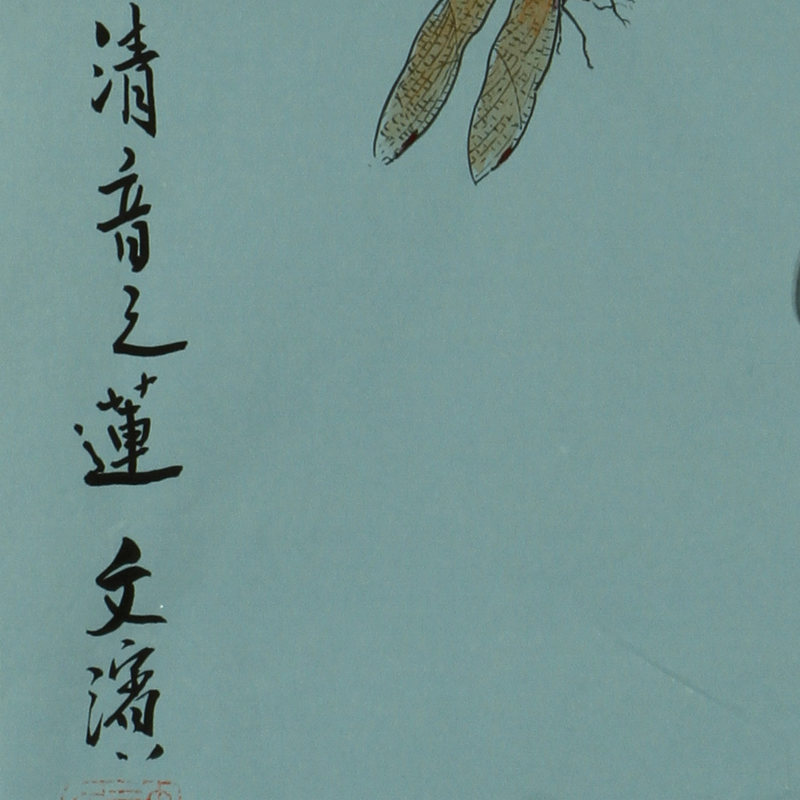 清音之蓮 文濱